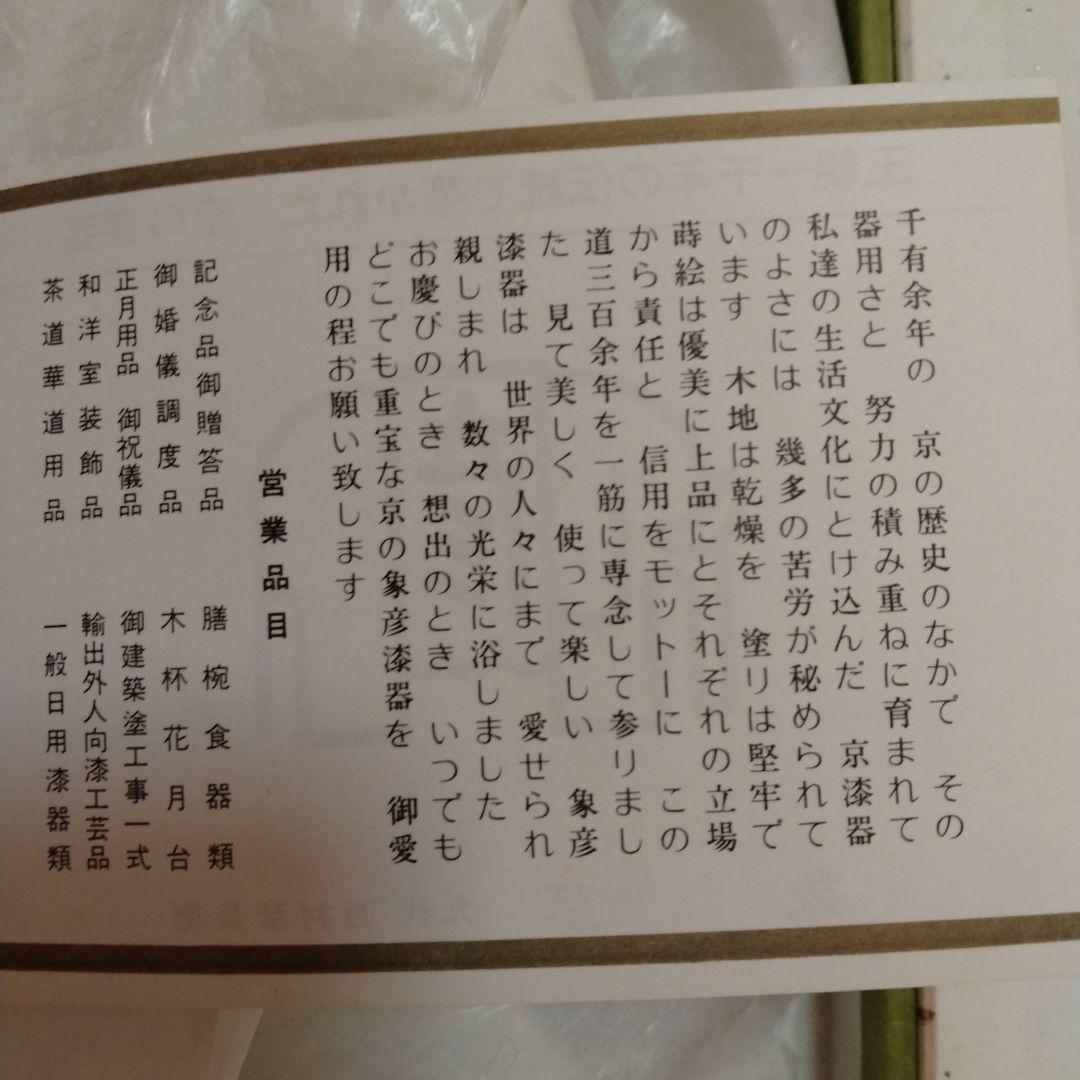 千有余年の　京の歴史のなかで　その
器用さと　努力の積み重ねに育まれて
私達の生活文化にとけ込んだ　京漆器
のよさには　幾多の苦労が秘められて
います　木地は乾燥を　塗リは堅牢で
蒔絵は優美に上品にとそれぞれの立場
から責任と　信用をモットーに　この
道三百余年を一筋に専念して参リまし
た　見て美しく　使って楽しい　象彦
漆器は　世界の人々にまで　愛せられ
親しまれ　数々の光栄に浴しました
お慶びのとき　想出のとき　いつでも
どこでも重宝な京の象彦漆器を　御愛
用の程お願い致します
営業品目
記念品御贈答品　膳椀食器類
御婚儀調度品　木杯花月台
正月用品　御祝儀品　御建築塗工事一式
和洋室装飾品　輸出外人向漆工芸品
茶道華道用品　一般日用漆器類